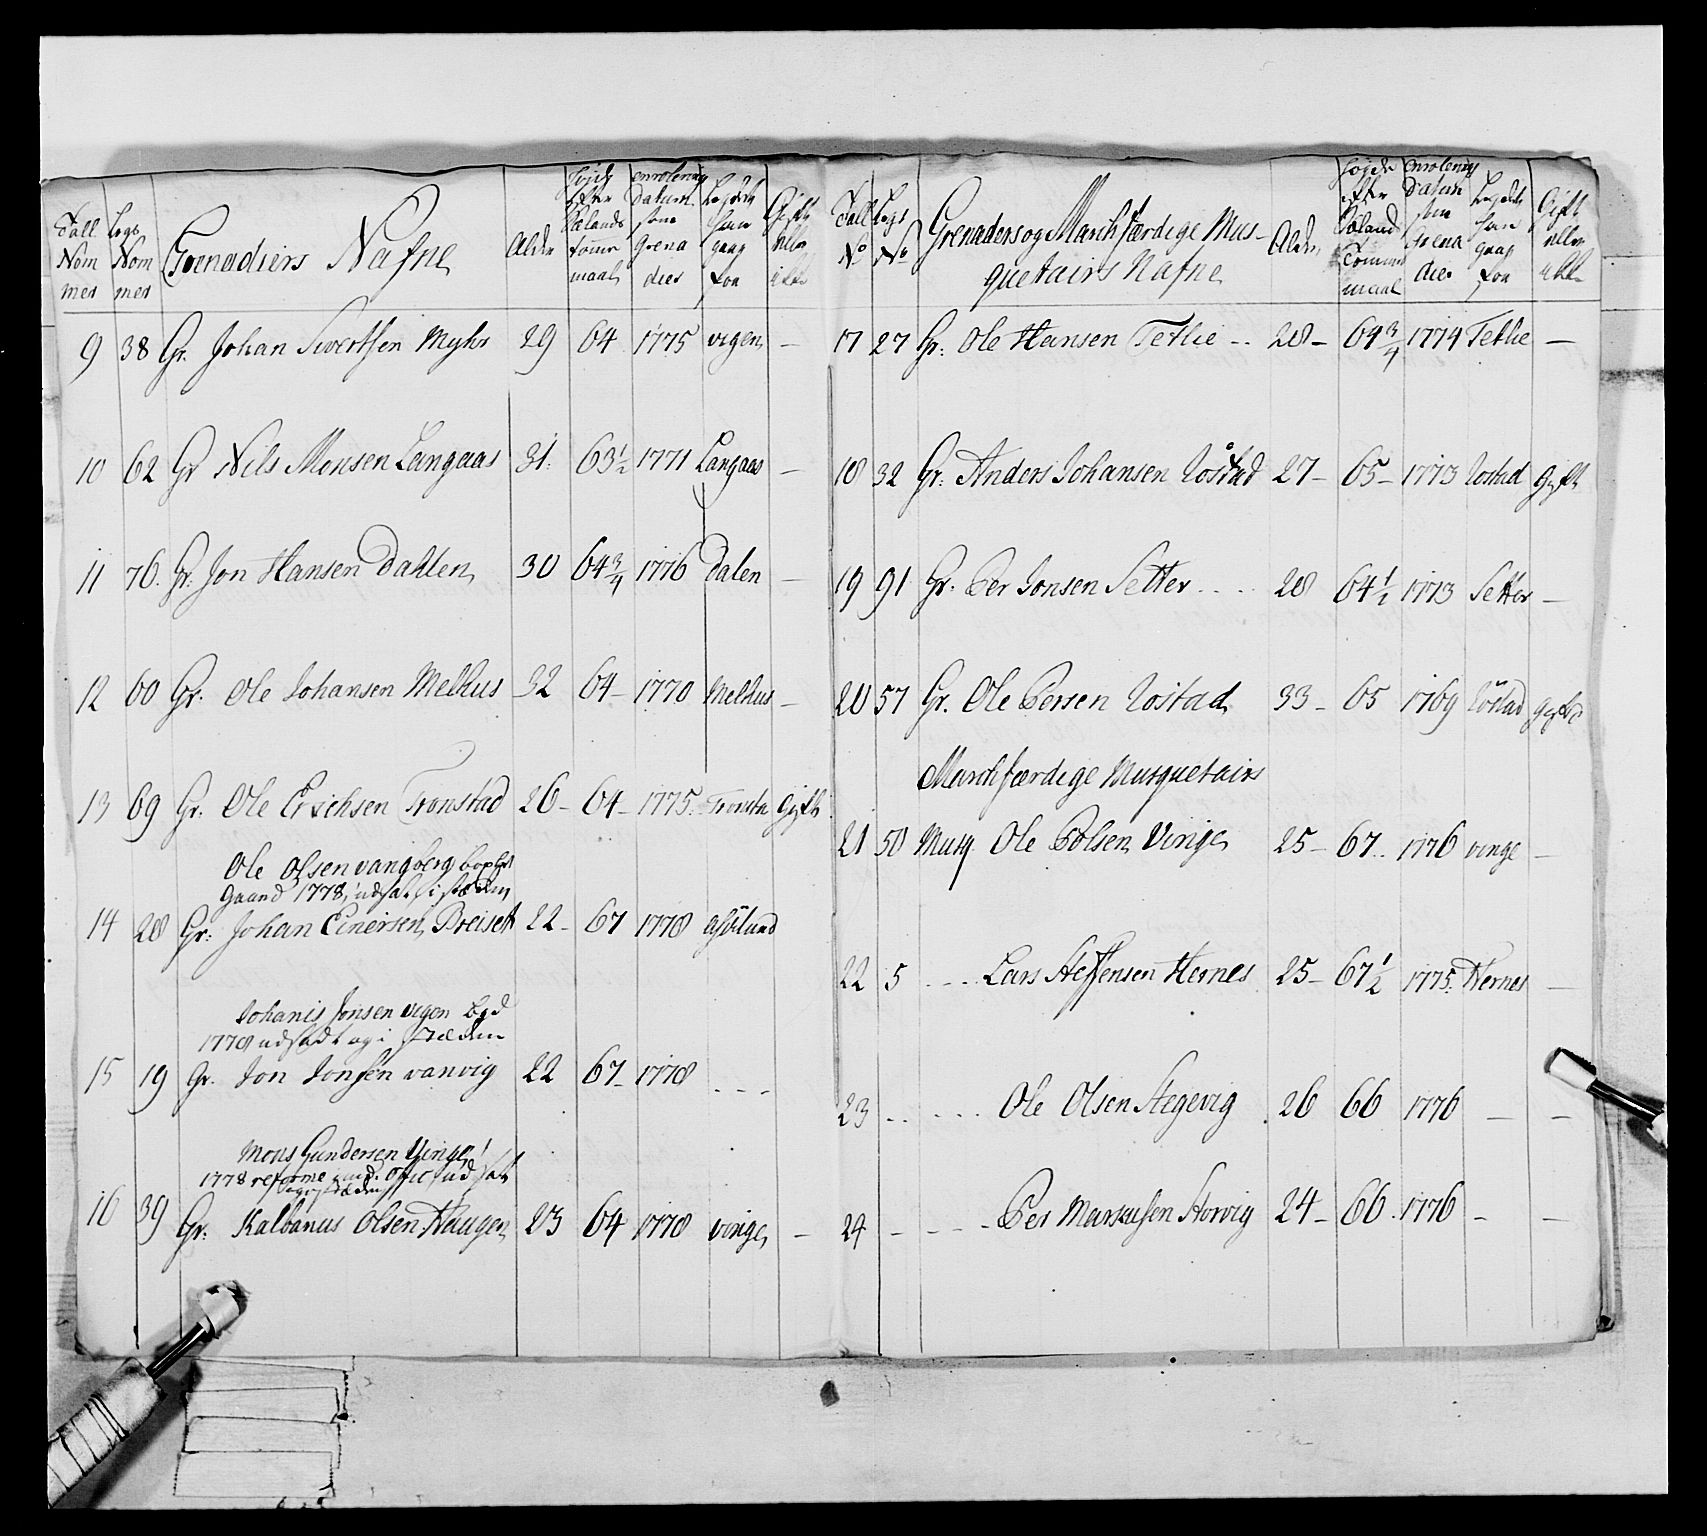 Tall Nommer Legs Nommer Grenadiers Nafne Alder Højde efter Sælands tomme maal enrolerings Datum som Grenadier Legdets han gaar for Gift eller ikke
9 38 Gr. Johan Siverthsen Myhr 29 64 1775 vigen —
10 62 Gr Nils Monsen Langaas 31. 63½ 1771 Langaas —
11 76. Gr. Jon Hansen Dahlen 30 64¾ 1776 Dalen —
12 60 Gr. Ole Johansen Melhus 32 64 – 1770 Melhus —
13 69 Gr. Ole Erichsen Tronstad 26 – 64 – 1775. Gift
Ole Olsen vangberg
Gaard 1778, udsat i stæden
14 28 Gr. Johan Einersen Breiset 22 – 67 1778
Johanis Jonsen vigen
1778 udsadt og i stæden
15 19 Gr. Jon Jonsen vanvig 22 67 – 1778 - - -
Mons Gundersen Vinge
1778 udsat
16 39 Gr. Kalbanus Olsen Haugen 23 64 1778 vinge —
Tall No Legs No Grenaders og Marchfærdige Musquetairs Nafne Alder Højde efter Sæland Tomme maal enrolerings Datum som Grenadier Legdets han gaar for Gift eller ikke
17 27 Gr. Ole Hansen Tetlie - - 28 – 64¾ 1774 Tetlie —
18 32 Gr. Anders Johansen Røstad 27 – 65 – 1773 Røstad Gift
19 91 Gr. Per Jonsen Setter - - - 28 64½ 1773 Setter —
20 57 Gr. Ole Persen Røstad 33 – 65 1769 Røstad
Marchfærdige Musquetairs
21 50 Musq Ole Polsen Vinge 25 – 67 - - 1776 vinge —
22 5 - - - Lars Steffensen Hernes 25 – 67½ 1775. Hernes —
23 - - - - - Ole Olsen Stegevig 26 66 1776 — —
24 - - - - Per Storvig 24 – 66. 1776 — —